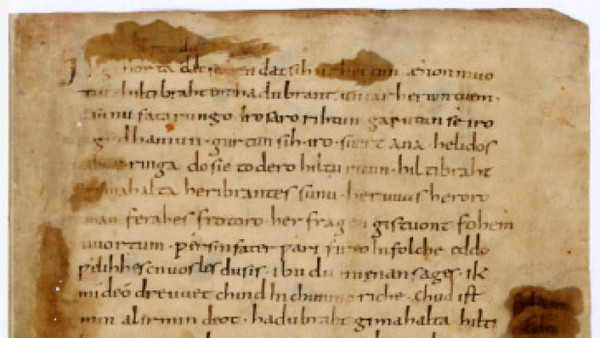 Ik gihorta dat seggen dat sih urhettun ænon muo
tin · hiltibraht enti hadubrant · untar heriun tuem ·
sunu fatarungo · iro saro rihtun garutun se iro
gudhamun · gurtun sih · iro · suert ana · helidos
ubar ringa do sie to dero hiltu ritun · hiltibraht
gimahalta heribrantes sunu · her uuas heroro
man ferahes frotoro · her fragen gistuont fohem
uuortum · ƿer sin fater ƿari fireo In folche eddo
ƿelihhes cnuosles du sis · ibu du mi enan sages · ik
mi deo dre uuet chind In chunincriche · chud ist
min al irmin deot · hadubraht gimahalta hilti